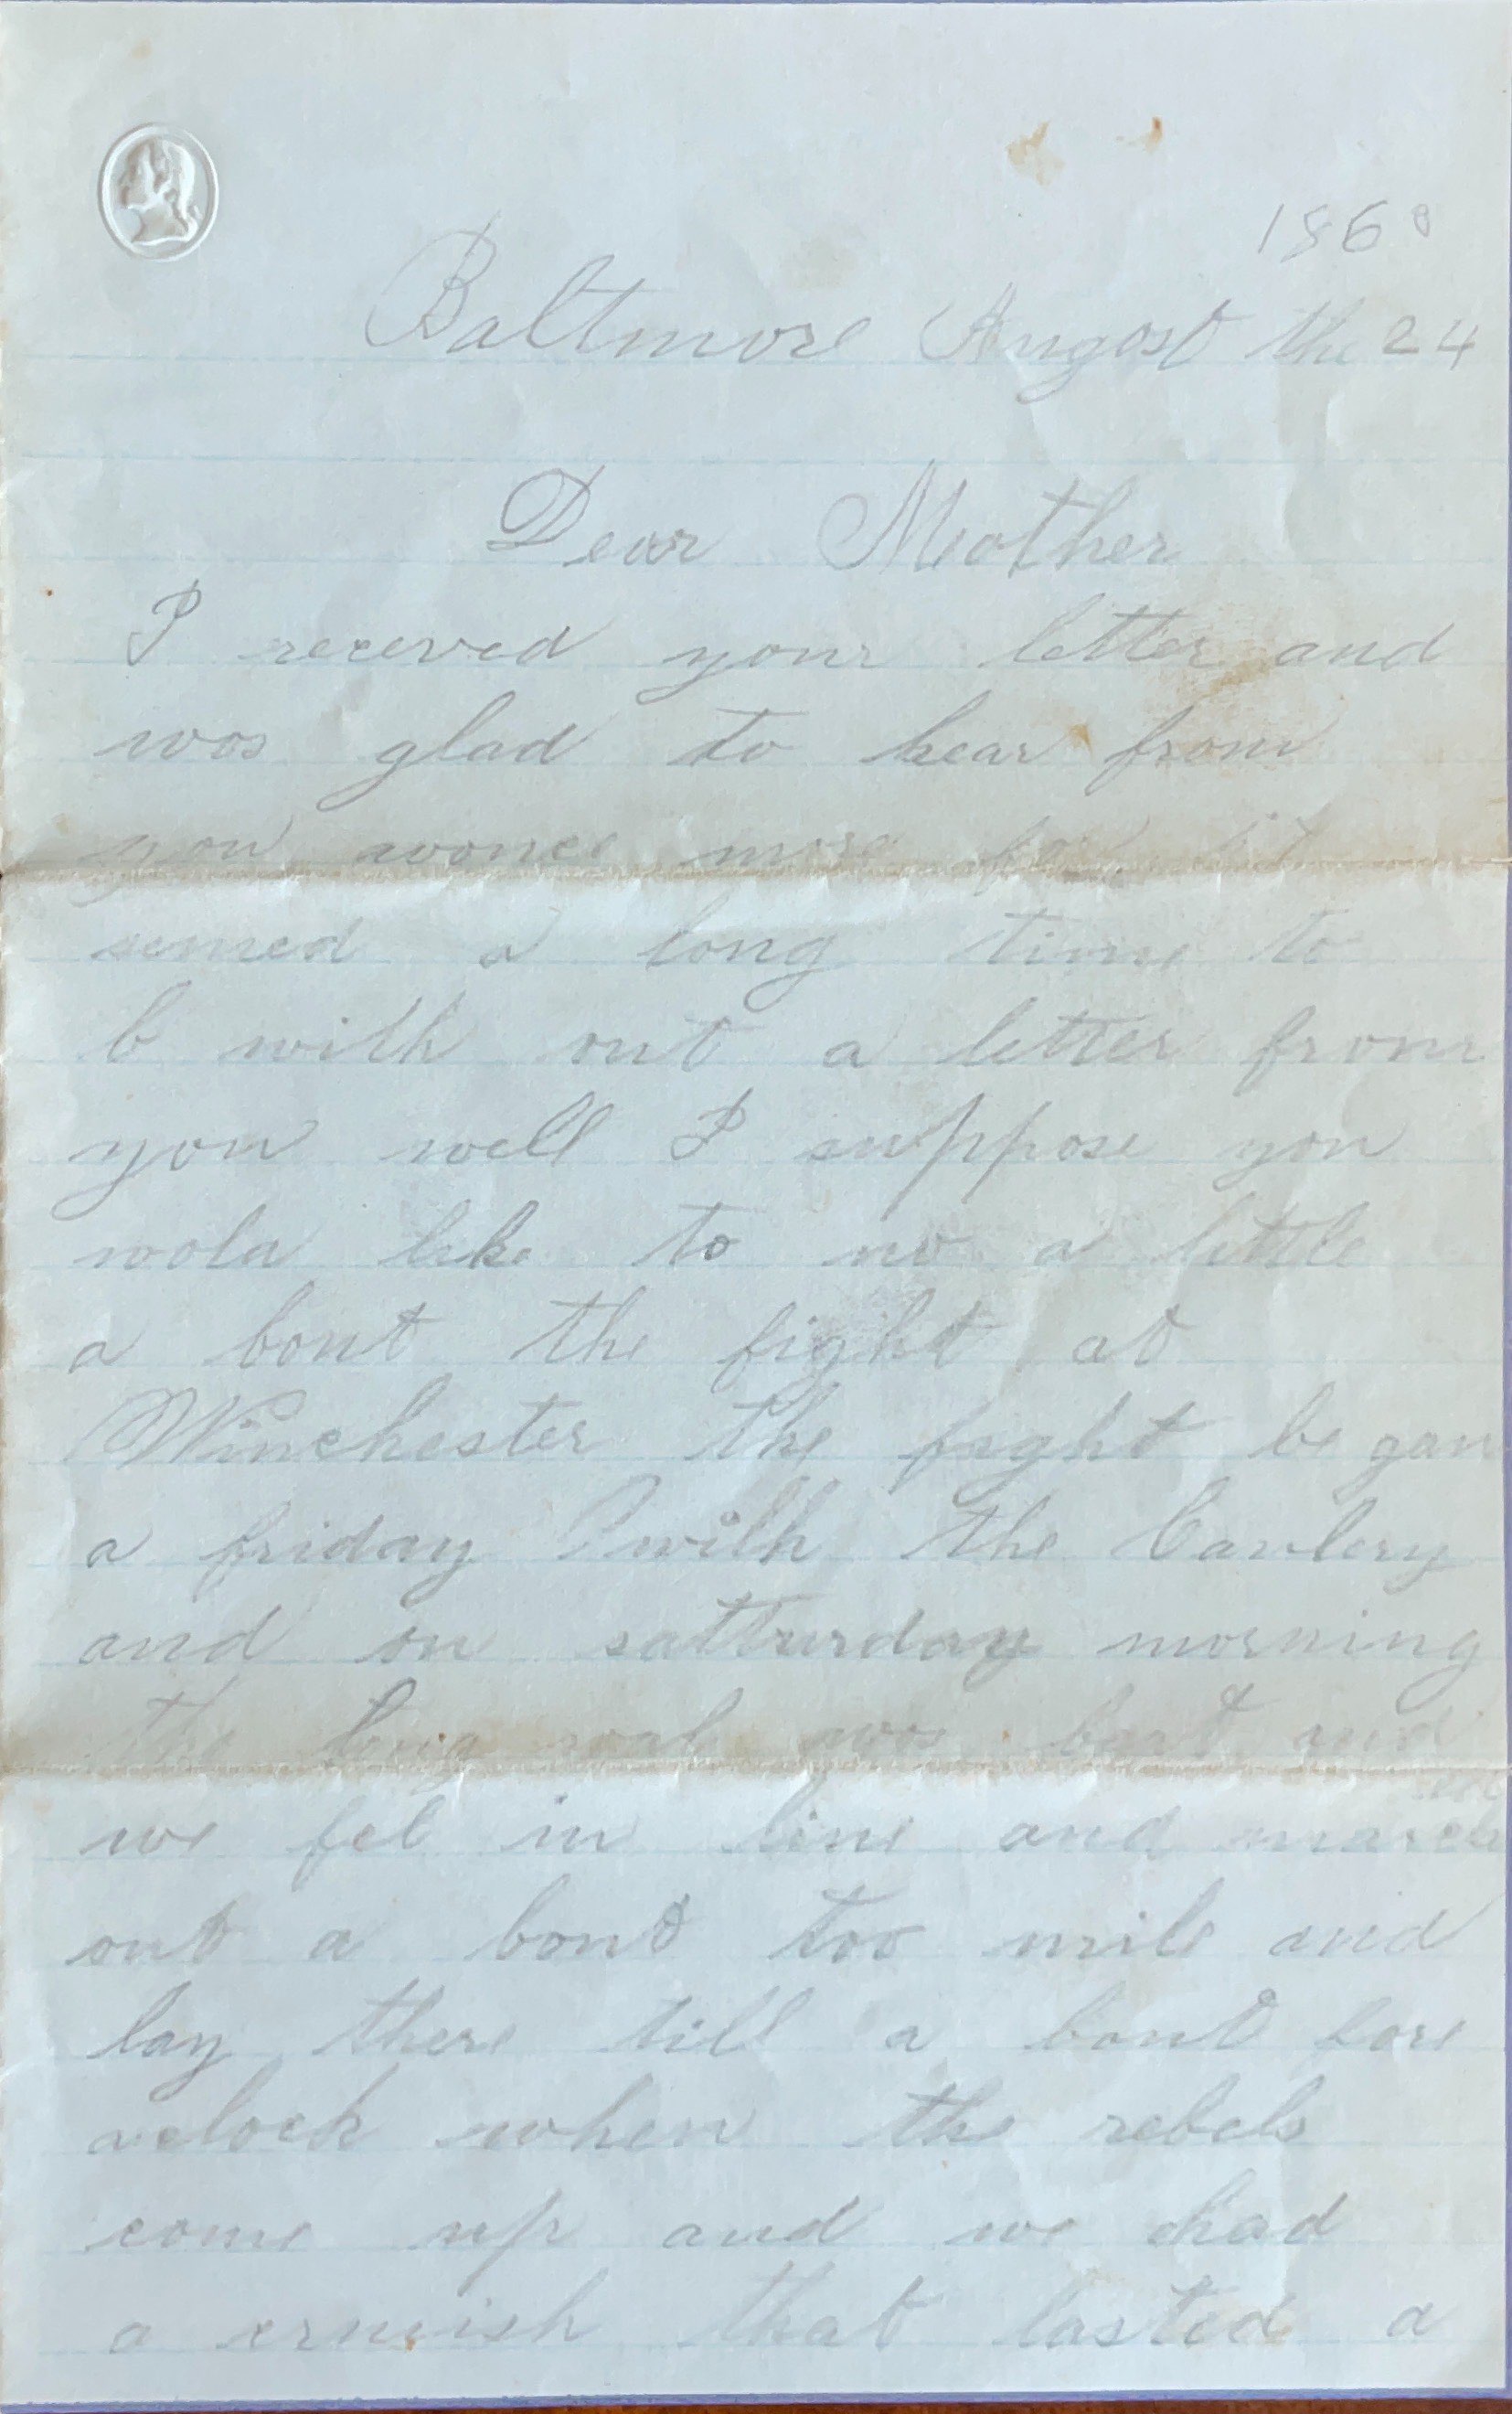 186
Baltmore Augost the 24
Dear Mother
I receved your letter and
was glad to hear from
you wonce more for it
semed a long time to
b with out a letter from
you well I suppose you
wold like to no a little
a bout the fight at
Winchester the fight be gan
a friday with the Cavlery
and on satturday morning
the long roal was beat and
we fel in line and march
out a bout too mile and
lay there till a bout fore
aclock when the rebels
come up and we had
a crmish that lasted a